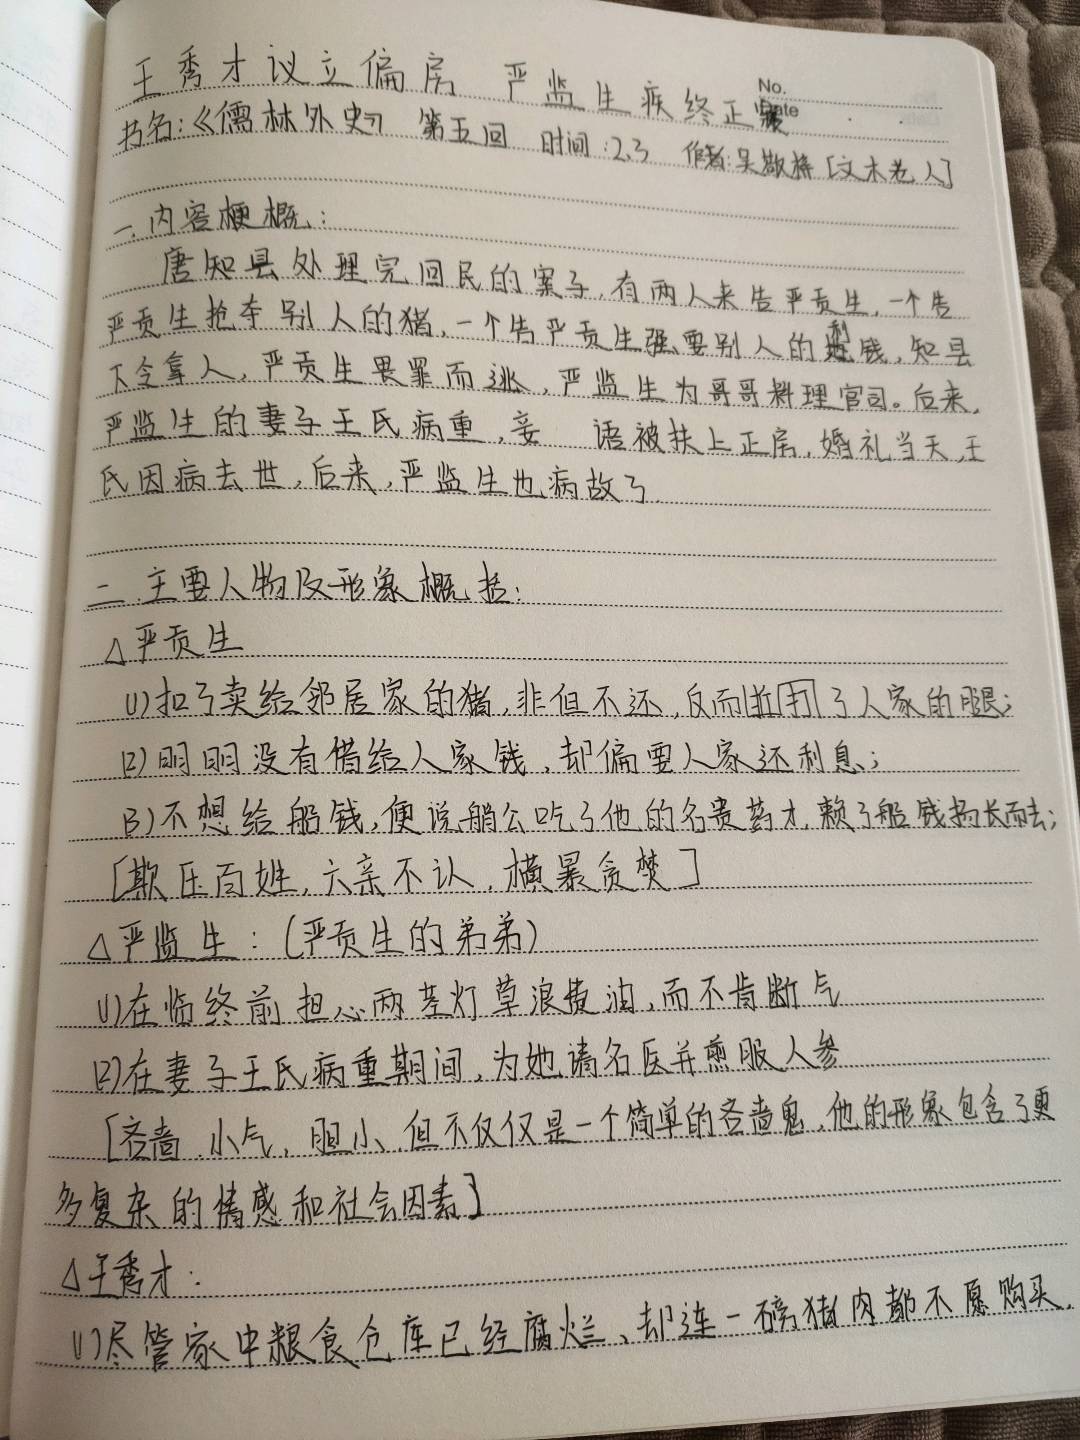 王秀才议立偏房 严监生疾终正寝
No.
Date
书名:《儒林外史》 第五回 时间:2.3 作者:吴敬梓[文木老人]
一.内容梗概:
唐知县处理完回民的案子,有两人来告严贡生,一个告
严贡生抢夺别人的猪,一个告严贡生强要别人的利钱,知县
下令拿人,严贡生畏罪而逃,严监生为哥哥料理官司。后来,
严监生的妻子王氏病重,妾 语被扶上正房,婚礼当天,王
氏因病去世,后来,严监生也病故了.
二.主要人物及形象概括:
△严贡生
(1)扣了卖给邻居家的猪,非但不还,反而打了人家的腿;
(2)明明没有借给人家钱,却偏要人家还利息;
(3)不想给船钱,便说艄公吃了他的名贵药才,赖了船钱扬长而去;
[欺压百姓,六亲不认,横暴贪婪]
△严监生:(严贡生的弟弟)
(1)在临终前担心两茎灯草浪费油,而不肯断气
(2)在妻子王氏病重期间,为她请名医并煎服人参
[吝啬,小气,胆小,但不仅仅是一个简单的吝啬鬼,他的形象包含了更
多复杂的情感和社会因素]
△王秀才:
(1)尽管家中粮食仓库已经腐烂、却连一磅猪肉都不愿购买.